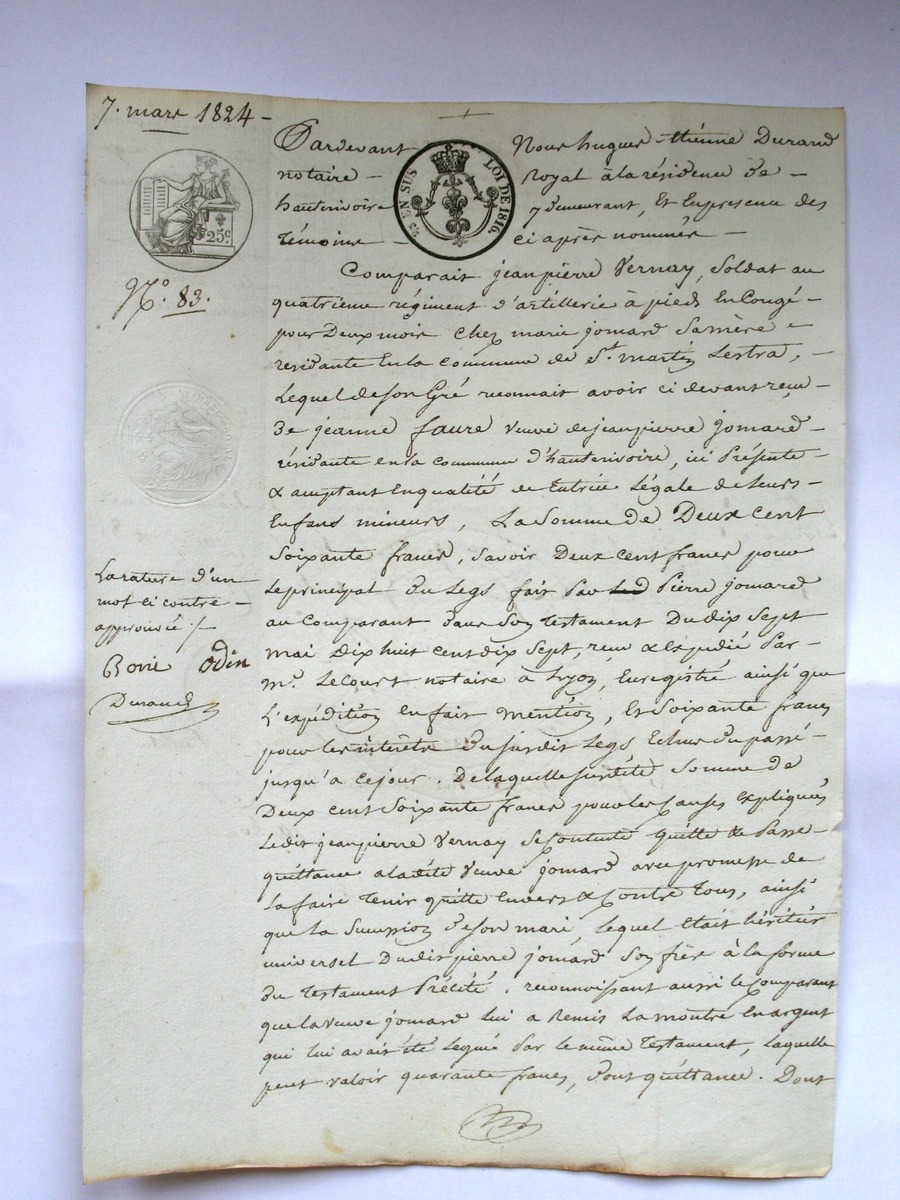 7. mars 1824 -
Pardevant Nous hugues - étienne Durand
notaire - royal à la résidence de -
hauterivoire y demeurant, Et En presence des
témoins - ci après nommés -
EN SUS LOI DE 1816.
25c.
N.º 83.
Comparait jeanpierre Vernay, Soldat au
quatrieme régiment d'artillerie à pieds En Congé -
pour Deux mois Chez marie jomard Sa mère -
residante En la commune de St. martin Lestra, -
Lequel de son Gré reconnait avoir ci devant reçu -
De jeanne faure veuve de jeanpierre jomard -
résidante en la commune d'hauterivoire, ici Présente -
& acceptant En qualité de tutrice Légale de leurs -
Enfans mineurs, La Somme de Deux cent
Soixante francs, Savoir Deux cent francs pour
Le principal du Legs fait Par Pierre jomard
au Comparant Dans Son testament Du dix Sept
mai Dix huit cent dix Sept, reçu & Expédié Par -
Me. Lecourt notaire à Lyon, Enregistré ainsi que
L'expédition en fait mention, Et Soixante francs
pour les interêts Du susdit Legs Echus du passé -
jusqu'a ce jour. De laquelle susdite Somme de
Deux cent Soixante francs pour les Causes Expliquées
Ledit jeanpierre Vernay Se Contente quitte & Passe -
quittance a ladite veuve jomard avec promesse de
La faire tenir quitte Envers & Contre tous, ainsi
que la Succession de son mari, lequel Etait héritier
universel Dudit pierre jomard Son frère à la forme
du testament Précité. reconnoissant aussi le Comparant
que la veuve jomard lui a Remis La montre En argent
qui lui avait été Legué Par le même testament, Laquelle
peut valoir quarante francs, Dont quittance. Dont
La rature d'un
mot ci contre -
approuvée /-
Boni odin
Durand